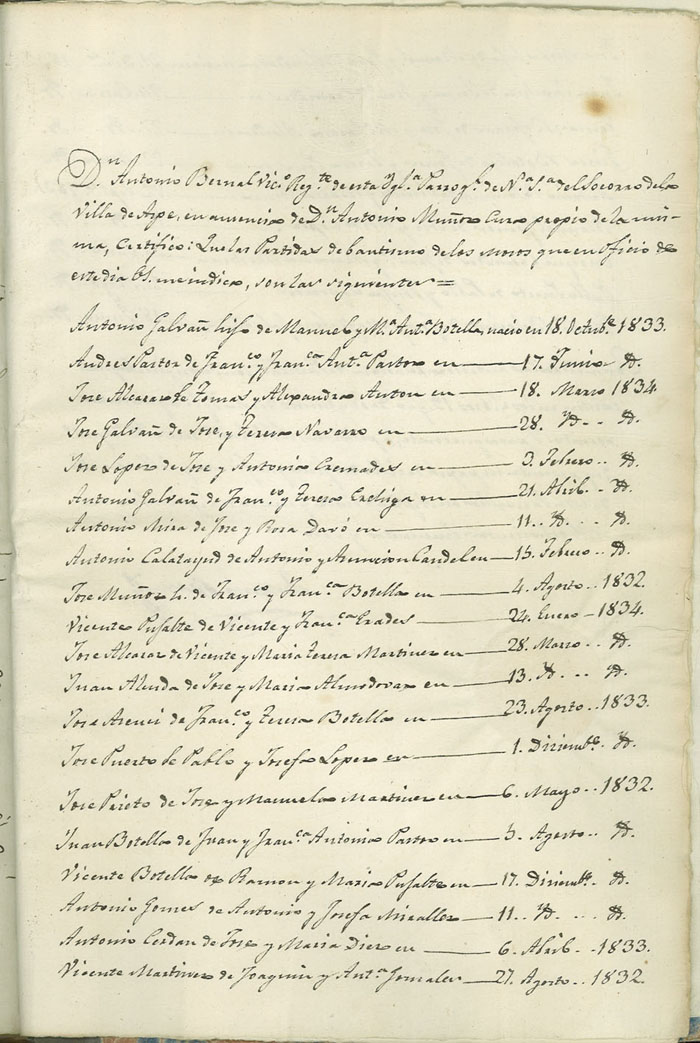 D.n Antonio Bernal Vic.o Reg.te de esta Ygl.a Parroq.l de N.a S.a del Socorro de la
Villa de Aspe, en ausencia de D.n Antonio Muñoz Cura propio de la mis-
ma, Certifico: Que las Partidas de bautismo de los mozos que en oficio de
este dia Vs. me indica, son las siguientes =
Antonio Galvañ hijo de Manuel y M.a Ant.a Botella, nacio en 18. Octub.e 1833.
Andres Pastor de Fran.co y Fran.ca Ant.a Pastor en — 17. Junio Yd.
Jose Alcaraz de Tomas y Alexandra Anton en — 18. Marzo 1834.
Jose Galvañ de Jose, y Teresa Navarro en — 28. Yd. . Yd.
Jose Lopez de Jose y Antonia Cremades en — 3. Febrero . . Yd.
Antonio Galvañ de Fran.co y Teresa en — 21. Abril . Yd.
Antonio Mira de Jose y Rosa Davó en — 11. . Yd. . . Yd.
Antonio Calatayud de Antonio y Asuncion Candel en — 15. Febrero . . Yd.
Jose Muñoz h. de Fran.co y Fran.ca Botella en — 4. Agosto . 1832.
Vicente Pujalte de Vicente y Fran.ca Prades — 24. Enero — 1834.
Jose Alcaraz de Vicente y Maria Teresa Martinez en — 28. Marzo . . Yd.
Juan Almda de Jose y Maria Almodovar en — 13. Yd. . . Yd.
Jose Asenci de Fran.co y Teresa Botella en — 23. Agosto . . 1833.
Jose Puerto de Pablo y Josefa Lopez en — 1. Diciemb.e Yd.
Jose Prieto de Jose y Manuela Martinez en — 6. Mayo . . 1832.
Juan Botella de Juan y Fran.ca Antonia Pastor en — 5. Agosto . . Yd.
Vicente Botella de Ramon y Maria Pujalte en — 17. Diciemb.e Yd.
Antonio Gomes de Antonio y Josefa Miralles — 11. . Yd. . . Yd.
Antonio Cerdan de Jose y Maria Diez en — 6. Abril . 1833.
Vicente Martinez de Joaquin y Ant.a Gonzalez — 27. Agosto . 1832.